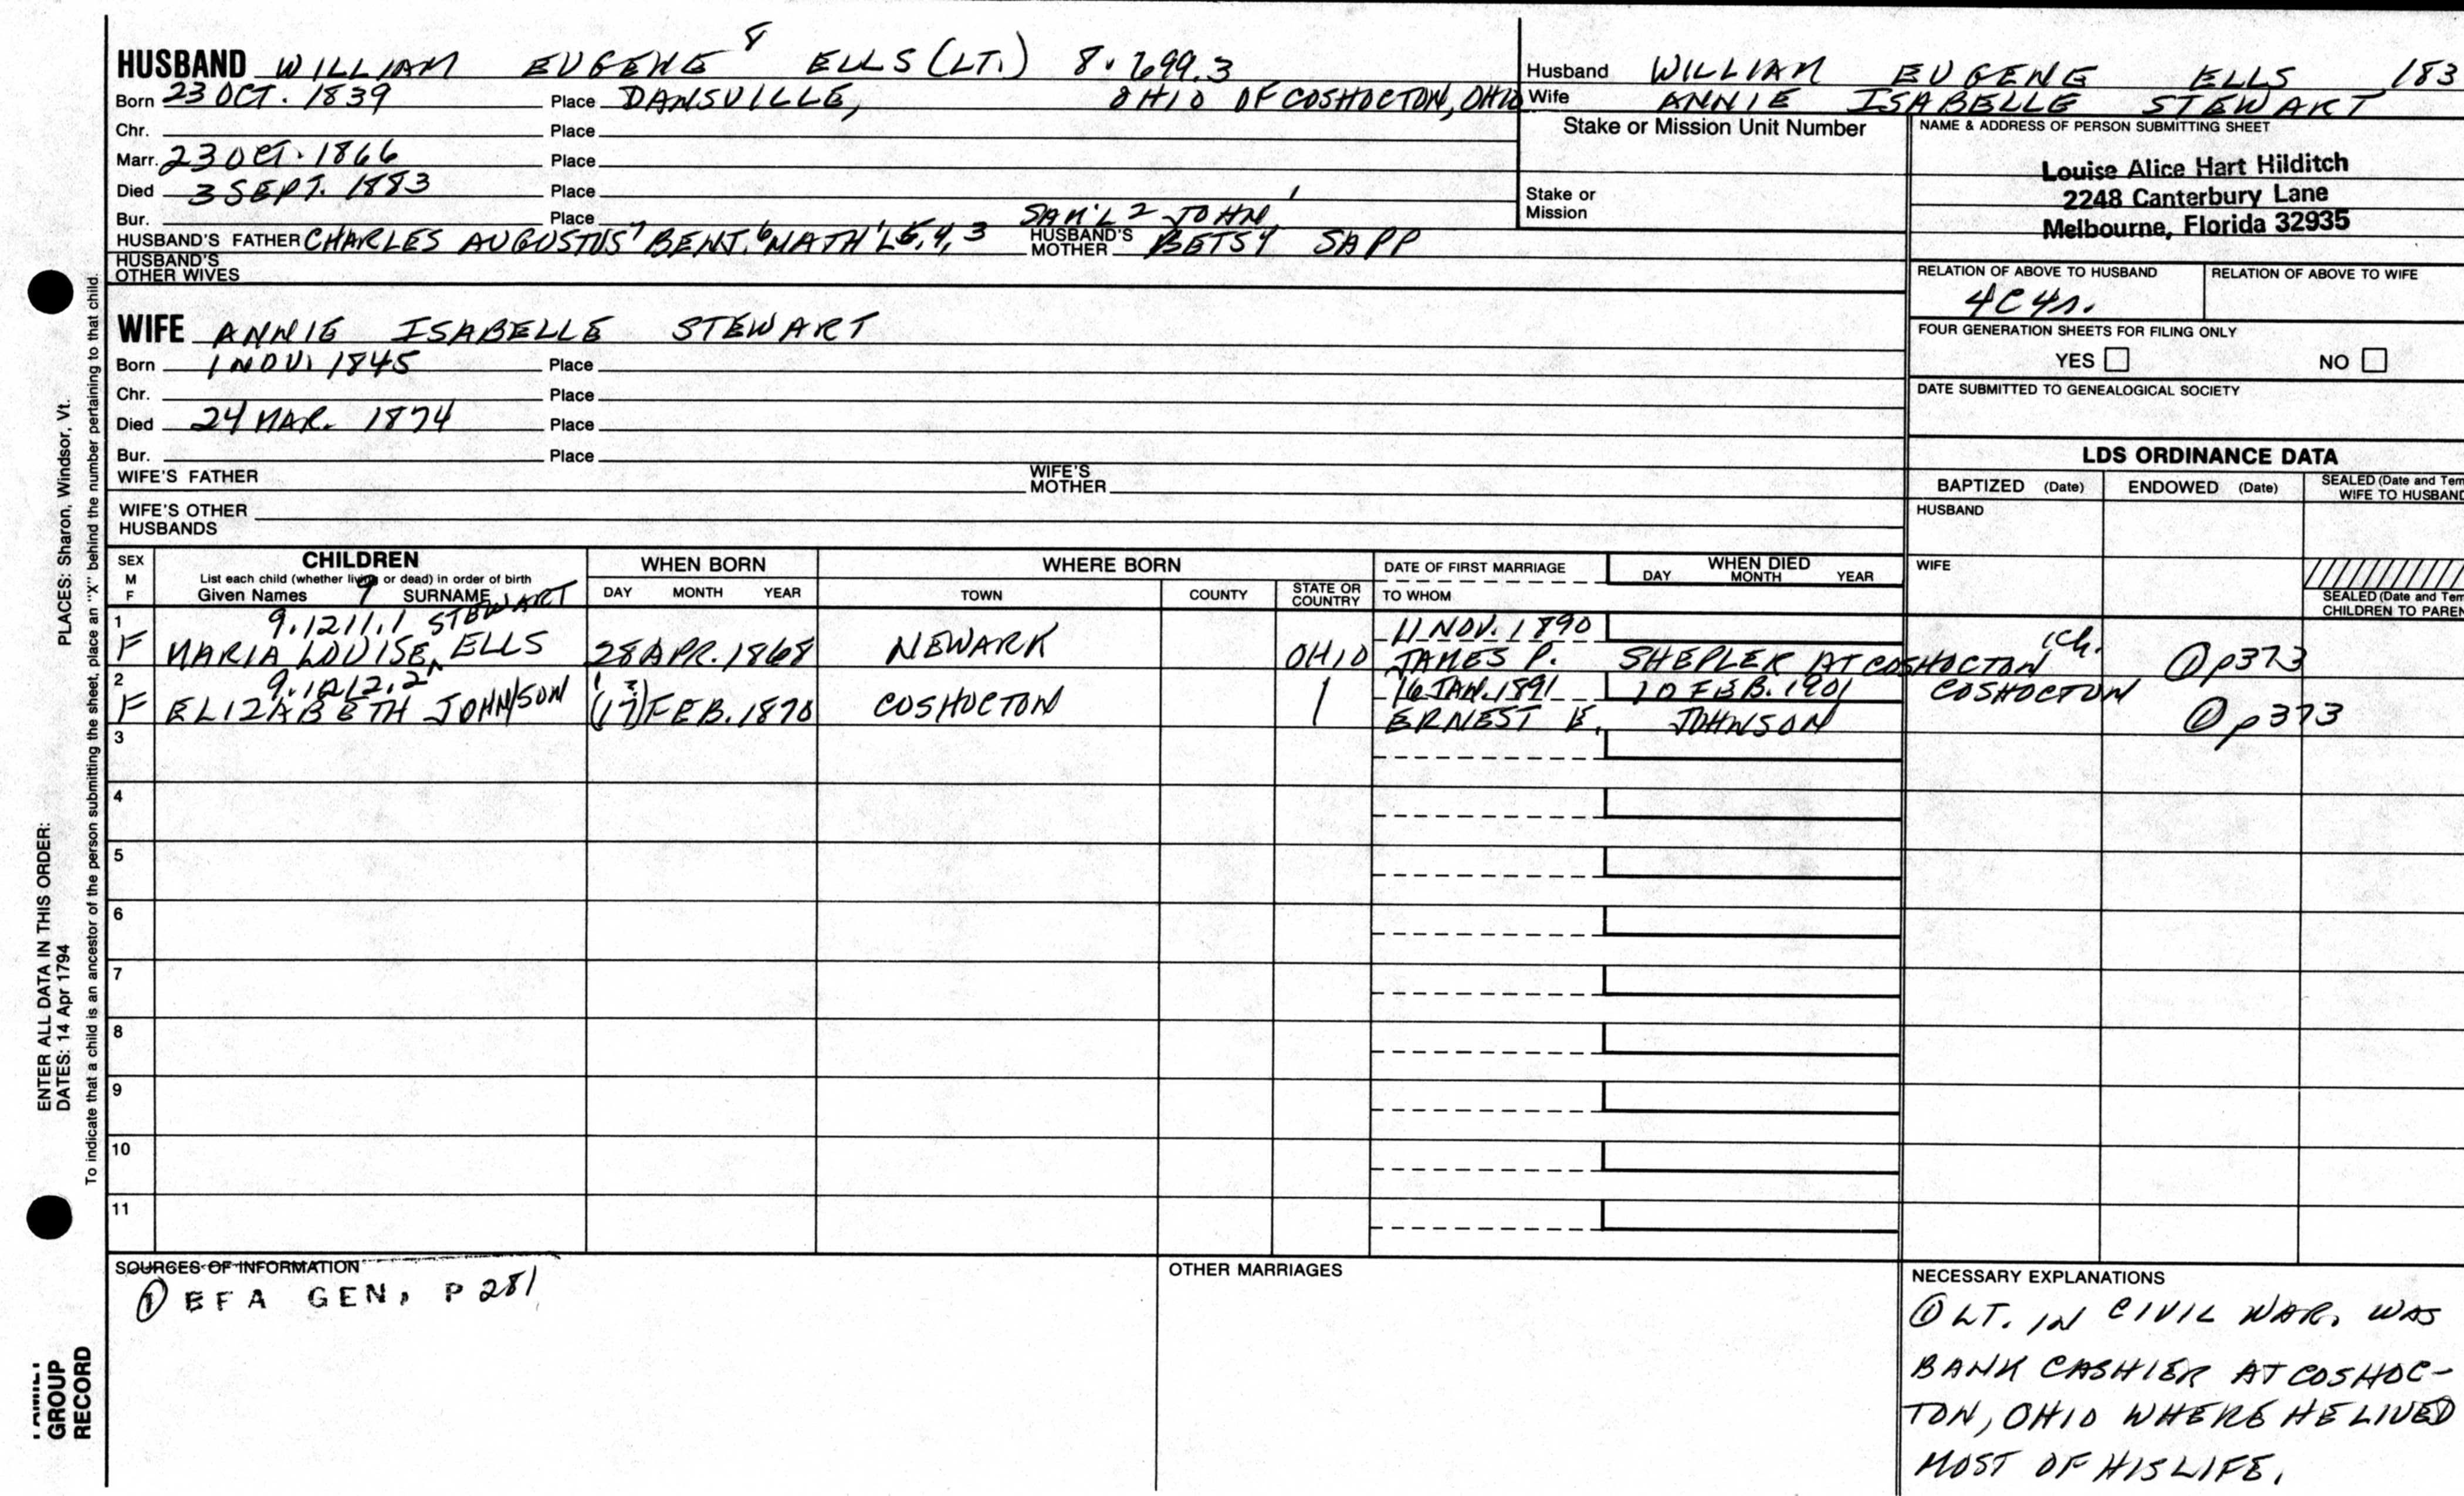 HUSBAND WILLIAM EUGENE 8 ELLS (LT.) 8.699.3
Born 23 OCT. 1839 Place DANSVILLE, OHIO OF COSHOCTON, OHIO
Chr. Place
Marr. 23 OCT. 1866 Place
Died 3 SEPT. 1883 Place
Bur. Place SAM'L 2 JOHN 1
HUSBAND'S FATHER CHARLES AUGUSTUS 7 BENJ. 6 NATH'L 5,4,3 HUSBAND'S MOTHER BETSY SAPP
HUSBAND'S OTHER WIVES
WIFE ANNIE ISABELLE STEWART
Born 1 NOV. 1845 Place
Chr. Place
Died 24 MAR. 1874 Place
Bur. Place
WIFE'S FATHER WIFE'S MOTHER
WIFE'S OTHER HUSBANDS
Husband WILLIAM EUGENE ELLS 183
Wife ANNIE ISABELLE STEWART
Stake or Mission Unit Number
Stake or Mission
NAME & ADDRESS OF PERSON SUBMITTING SHEET
Louise Alice Hart Hilditch
2248 Canterbury Lane
Melbourne, Florida 32935
RELATION OF ABOVE TO HUSBAND RELATION OF ABOVE TO WIFE
4C4r.
FOUR GENERATION SHEETS FOR FILING ONLY
YES NO
DATE SUBMITTED TO GENEALOGICAL SOCIETY
LDS ORDINANCE DATA
BAPTIZED (Date) ENDOWED (Date) SEALED (Date and Tem
WIFE TO HUSBAND
HUSBAND
WIFE
SEALED (Date and Tem
CHILDREN TO PAREN
SEX M F
CHILDREN
List each child (whether living or dead) in order of birth
Given Names 9 SURNAME
WHEN BORN
DAY MONTH YEAR
WHERE BORN
TOWN COUNTY STATE OR COUNTRY
DATE OF FIRST MARRIAGE
TO WHOM
WHEN DIED
DAY MONTH YEAR
1 9.1211.1 STEWART 11 NOV. 1890
F MARIA LOUISE ELLS 28 APR. 1868 NEWARK OHIO JAMES P. SHEPLER AT COSHOCTON 1Ch. ① p373
2 9.1212.2 16 JAN. 1891 10 FEB. 1901 COSHOCTON
F ELIZABETH JOHNSON (17) FEB. 1870 COSHOCTON ERNEST E. JOHNSON ① p373
3
4
5
6
7
8
9
10
11
SOURCES OF INFORMATION
① EFA GEN, P 281
OTHER MARRIAGES
NECESSARY EXPLANATIONS
① LT. IN CIVIL WAR. WAS
BANK CASHIER AT COSHOC-
TON, OHIO WHERE HE LIVED
MOST OF HIS LIFE.
ENTER ALL DATA IN THIS ORDER:
DATES: 14 Apr 1794 PLACES: Sharon, Windsor, Vt.
To indicate that a child is an ancestor of the person submitting the sheet, place an "X" behind the number pertaining to that child.
FAMILY
GROUP
RECORD